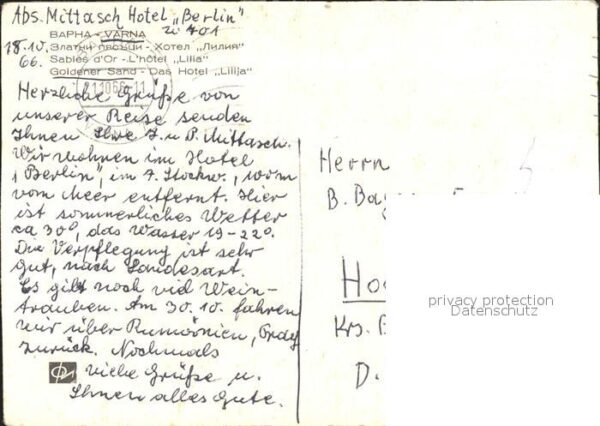 Abs. Mittasch Hotel „Berlin"
Zi 401
18.10.
66.
ВАРНА - VARNA
Златни пясъци - Хотел „Лилия"
Sables d'Or - L'hôtel „Lilia"
Goldener Sand - Das Hotel „Lilija"
Herzliche Grüße von
unserer Reise senden
Ihnen Ihre J. u P. Mittasch.
Wir wohnen im Hotel
„Berlin", im 4. Stockw.,
vom Meer entfernt. Hier
ist sommerliches Wetter
ca 30°, das Wasser 19-22°.
Die Verpflegung ist sehr
gut, nach Landesart.
Es gibt noch viel Wein-
trauben. Am 30.10. fahren
wir über Rumänien, Prag
zurück. Nochmals
viele Grüße u.
Ihnen alles Gute.
Herrn
B. Bag
Ho
Krs. B
D.
privacy protection
Datenschutz